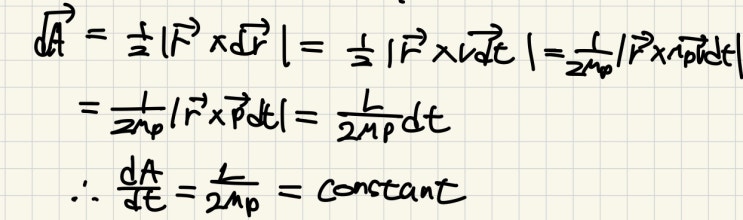 $\vec{dA} = \frac{1}{2}|\vec{r} \times \vec{dr}| = \frac{1}{2}|\vec{r} \times \vec{vdt}| = \frac{1}{2M_p}|\vec{r} \times M_p\vec{v}dt|$
$= \frac{1}{2M_p}|\vec{r} \times \vec{p}dt| = \frac{L}{2M_p}dt$
$\therefore \frac{dA}{dt} = \frac{L}{2M_p} = constant$